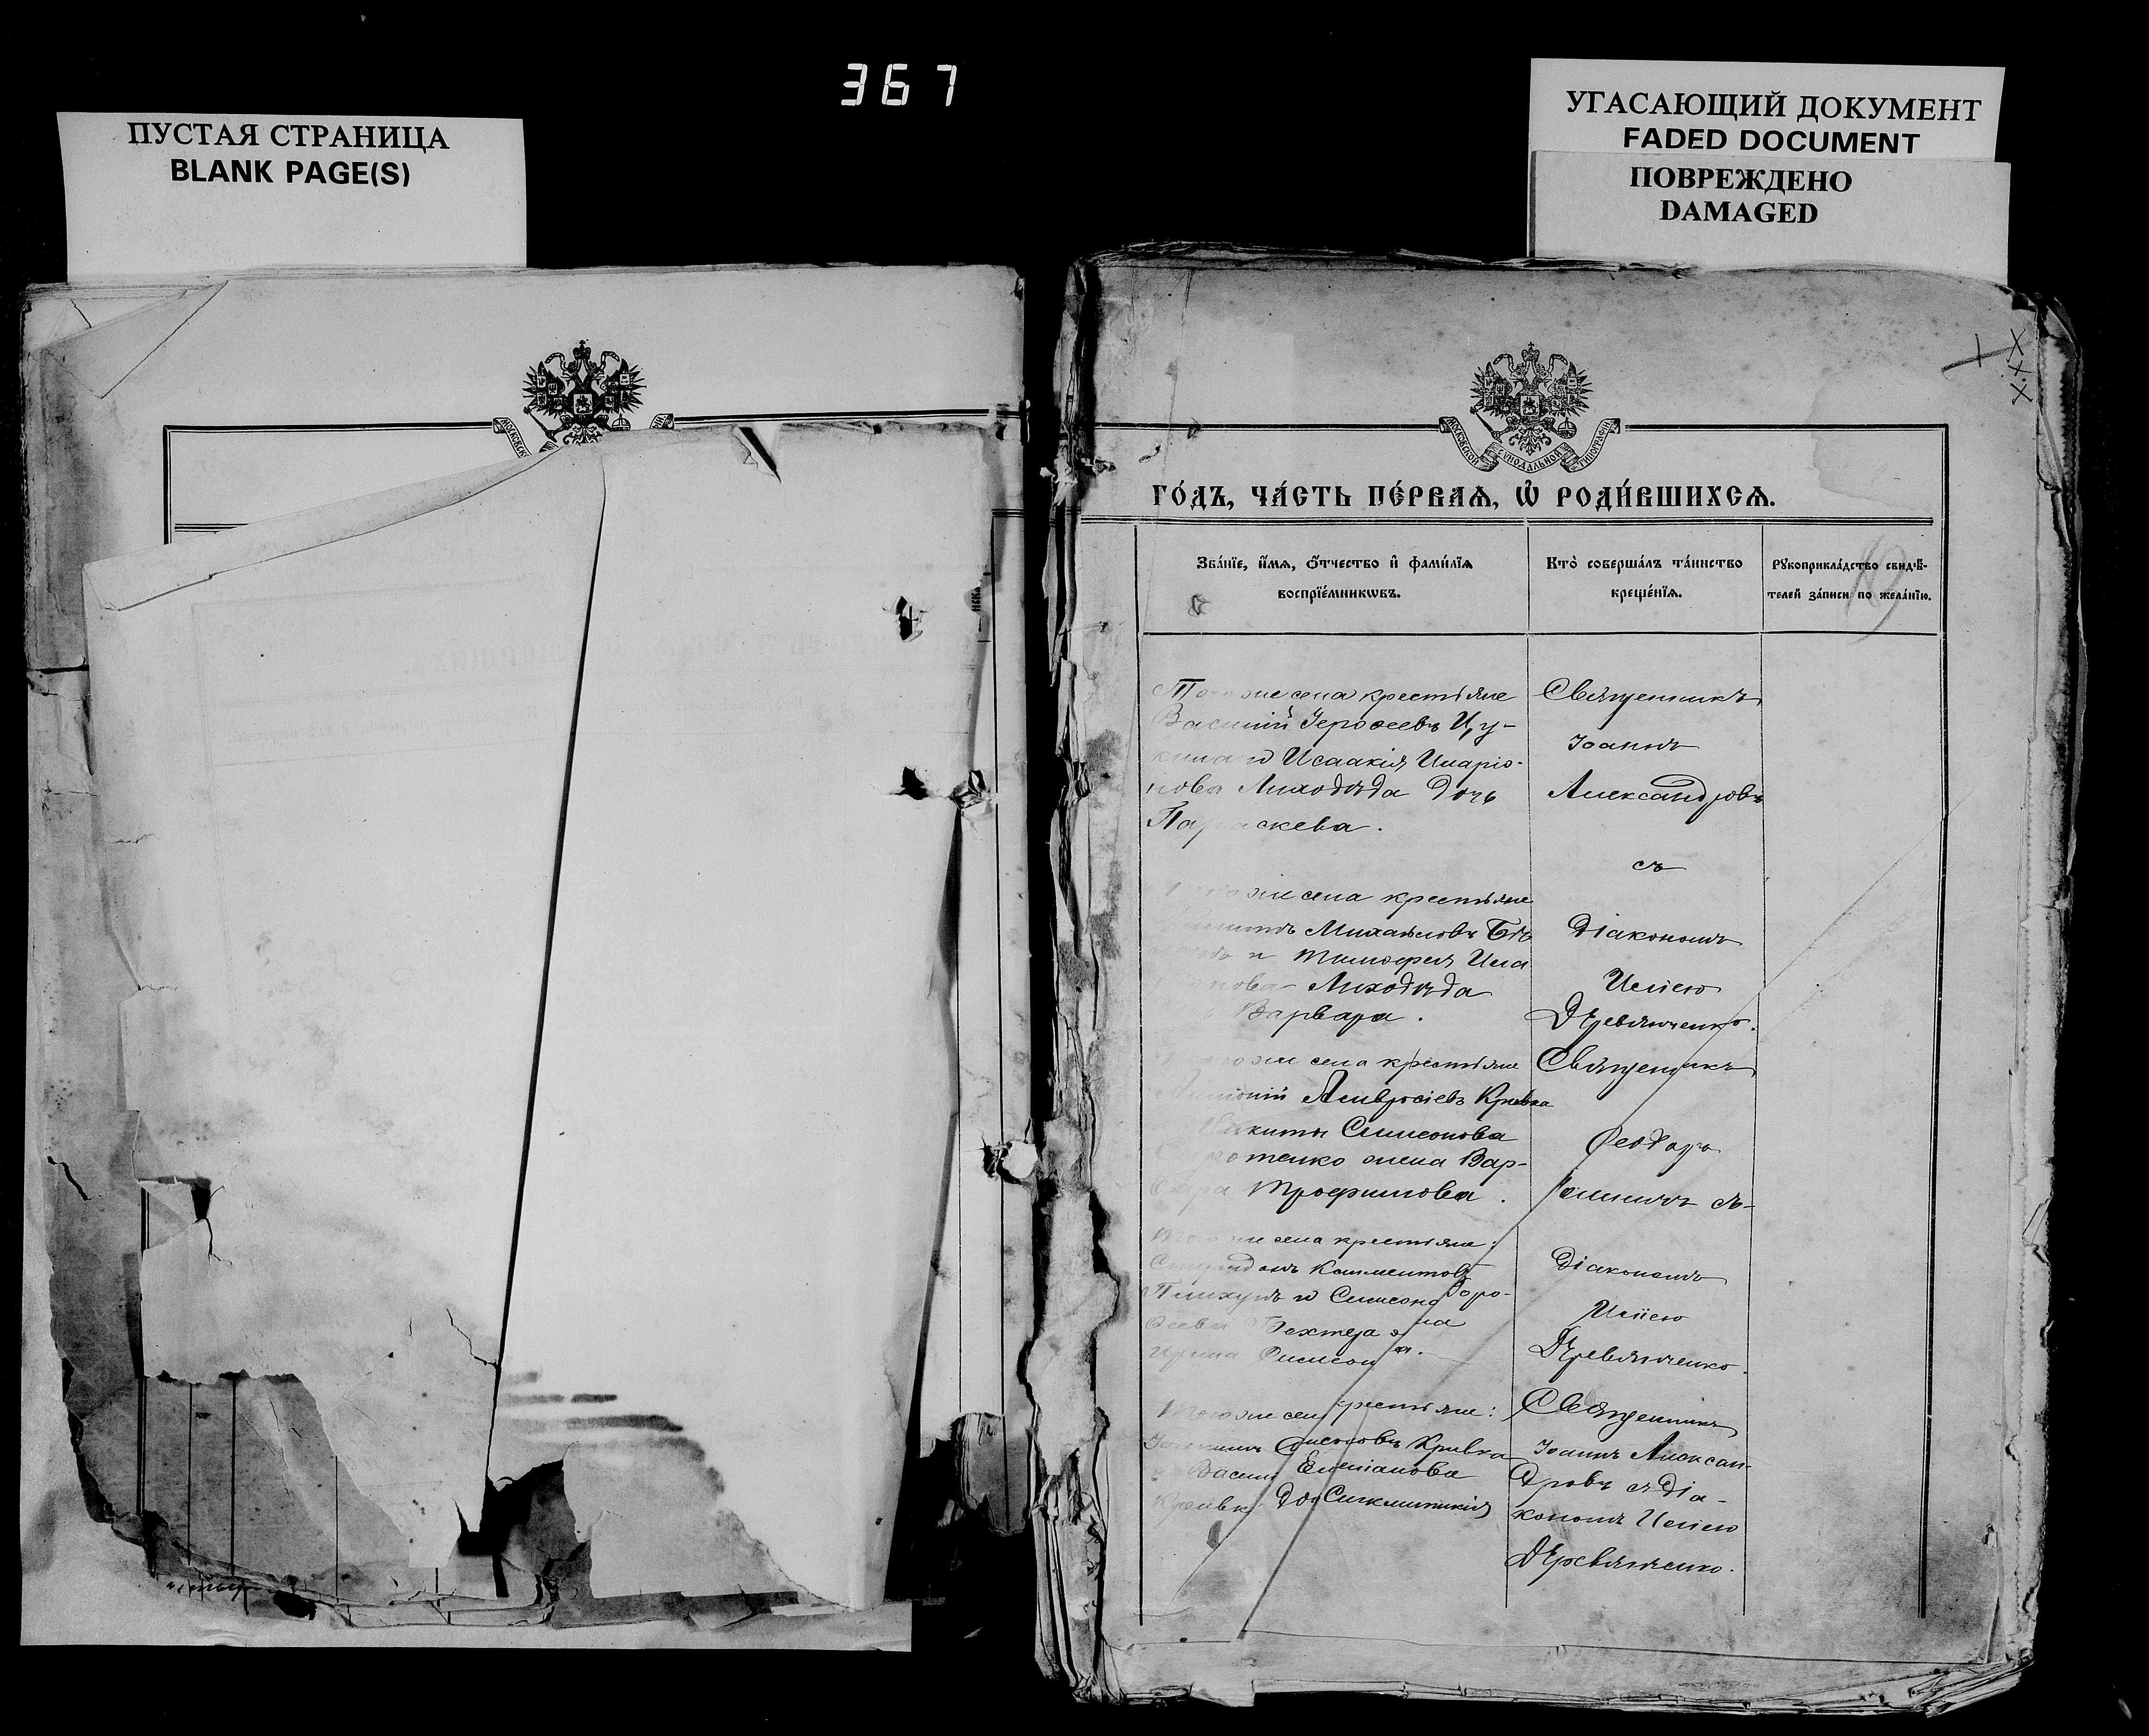 367
ПУСТАЯ СТРАНИЦА
BLANK PAGE(S)
УГАСАЮЩИЙ ДОКУМЕНТ
FADED DOCUMENT
ПОВРЕЖДЕНО
DAMAGED
МОСКОВСКОЙ СѴНОДАЛЬНОЙ ТИПОГРАФІИ
ГО́ДЪ, ЧА́СТЬ ПЕ́РВАѦ, Ѡ҆ РОДИ́ВШИХСѦ.
Зва́нїе, и҆́мѧ, ѻ҆́тчество и҆ фами́лїѧ
воспрїе́мникѡвъ.
Кто̀ соверша́лъ та́инство
креще́нїѧ.
Рꙋкоприкла́дство свидѣ́-
телей за́писи по жела́нїю.
Того же села крестьяне
Василій Іероѳеевъ Цу-
и Исаакія Иларіо-
нова Лиходѣда дочь
Параскева.
Священникъ
Іоаннъ
Александровъ
съ
же села крестьяне
Михаиловъ
и Тимофея Ила
нова Лиходѣда
Варвара.
Діакономъ
Исіею
Деревянченко.
же села крестьяне
Антоній Амвросіевъ Кривка
Никиты Симеонова
жена Вар-
вара Трофимова.
Священникъ
Ѳеодоръ
съ
Того же села крестьяне:
Спиридонъ Климентовъ
и Симеона Доро-
Бехтера
Діакономъ
Исіею
Деревянченко.
Того же села крестьяне:
Кривка
Василія Емеліанова
Кривки дочь Сиклитикія
Священникъ
Іоаннъ Алексан-
дровъ съ Діа-
кономъ Исіею
Деревянченко.